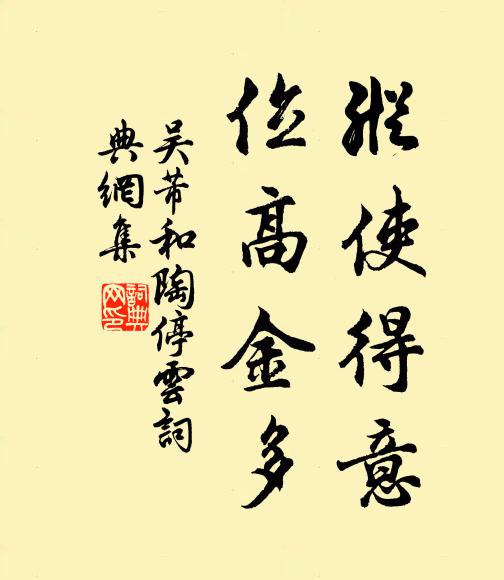 縱使得意
位高金多
吴芾和陶停雲詞
典網集
詞典網印